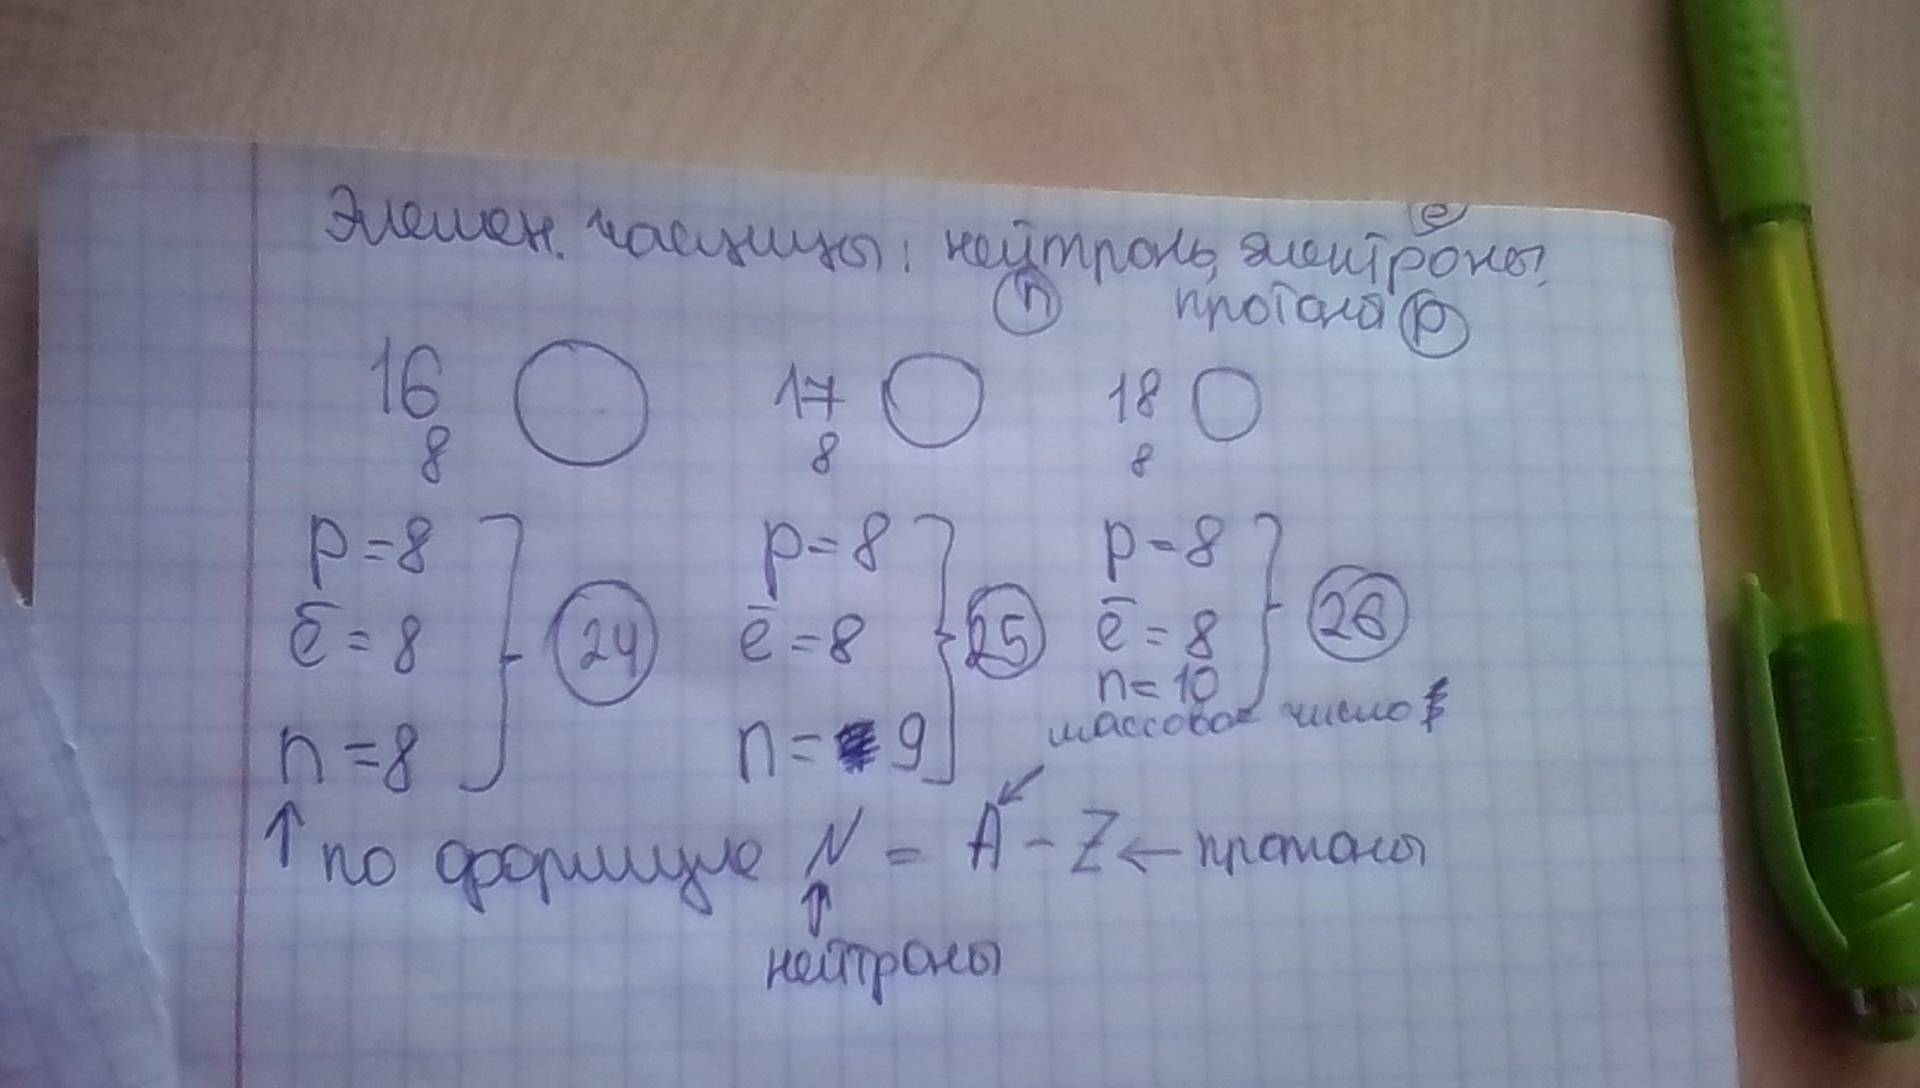 Элемен. частицы: нейтроны, электроны,
e
n
протоны p
16 8 O
17 8 O
18 8 O
p=8
ē=8
n=8
24
p=8
ē=8
n=9
25
p=8
ē=8
n=10
26
массовое число
↑ по формуле N = A - Z ← протоны
нейтроны